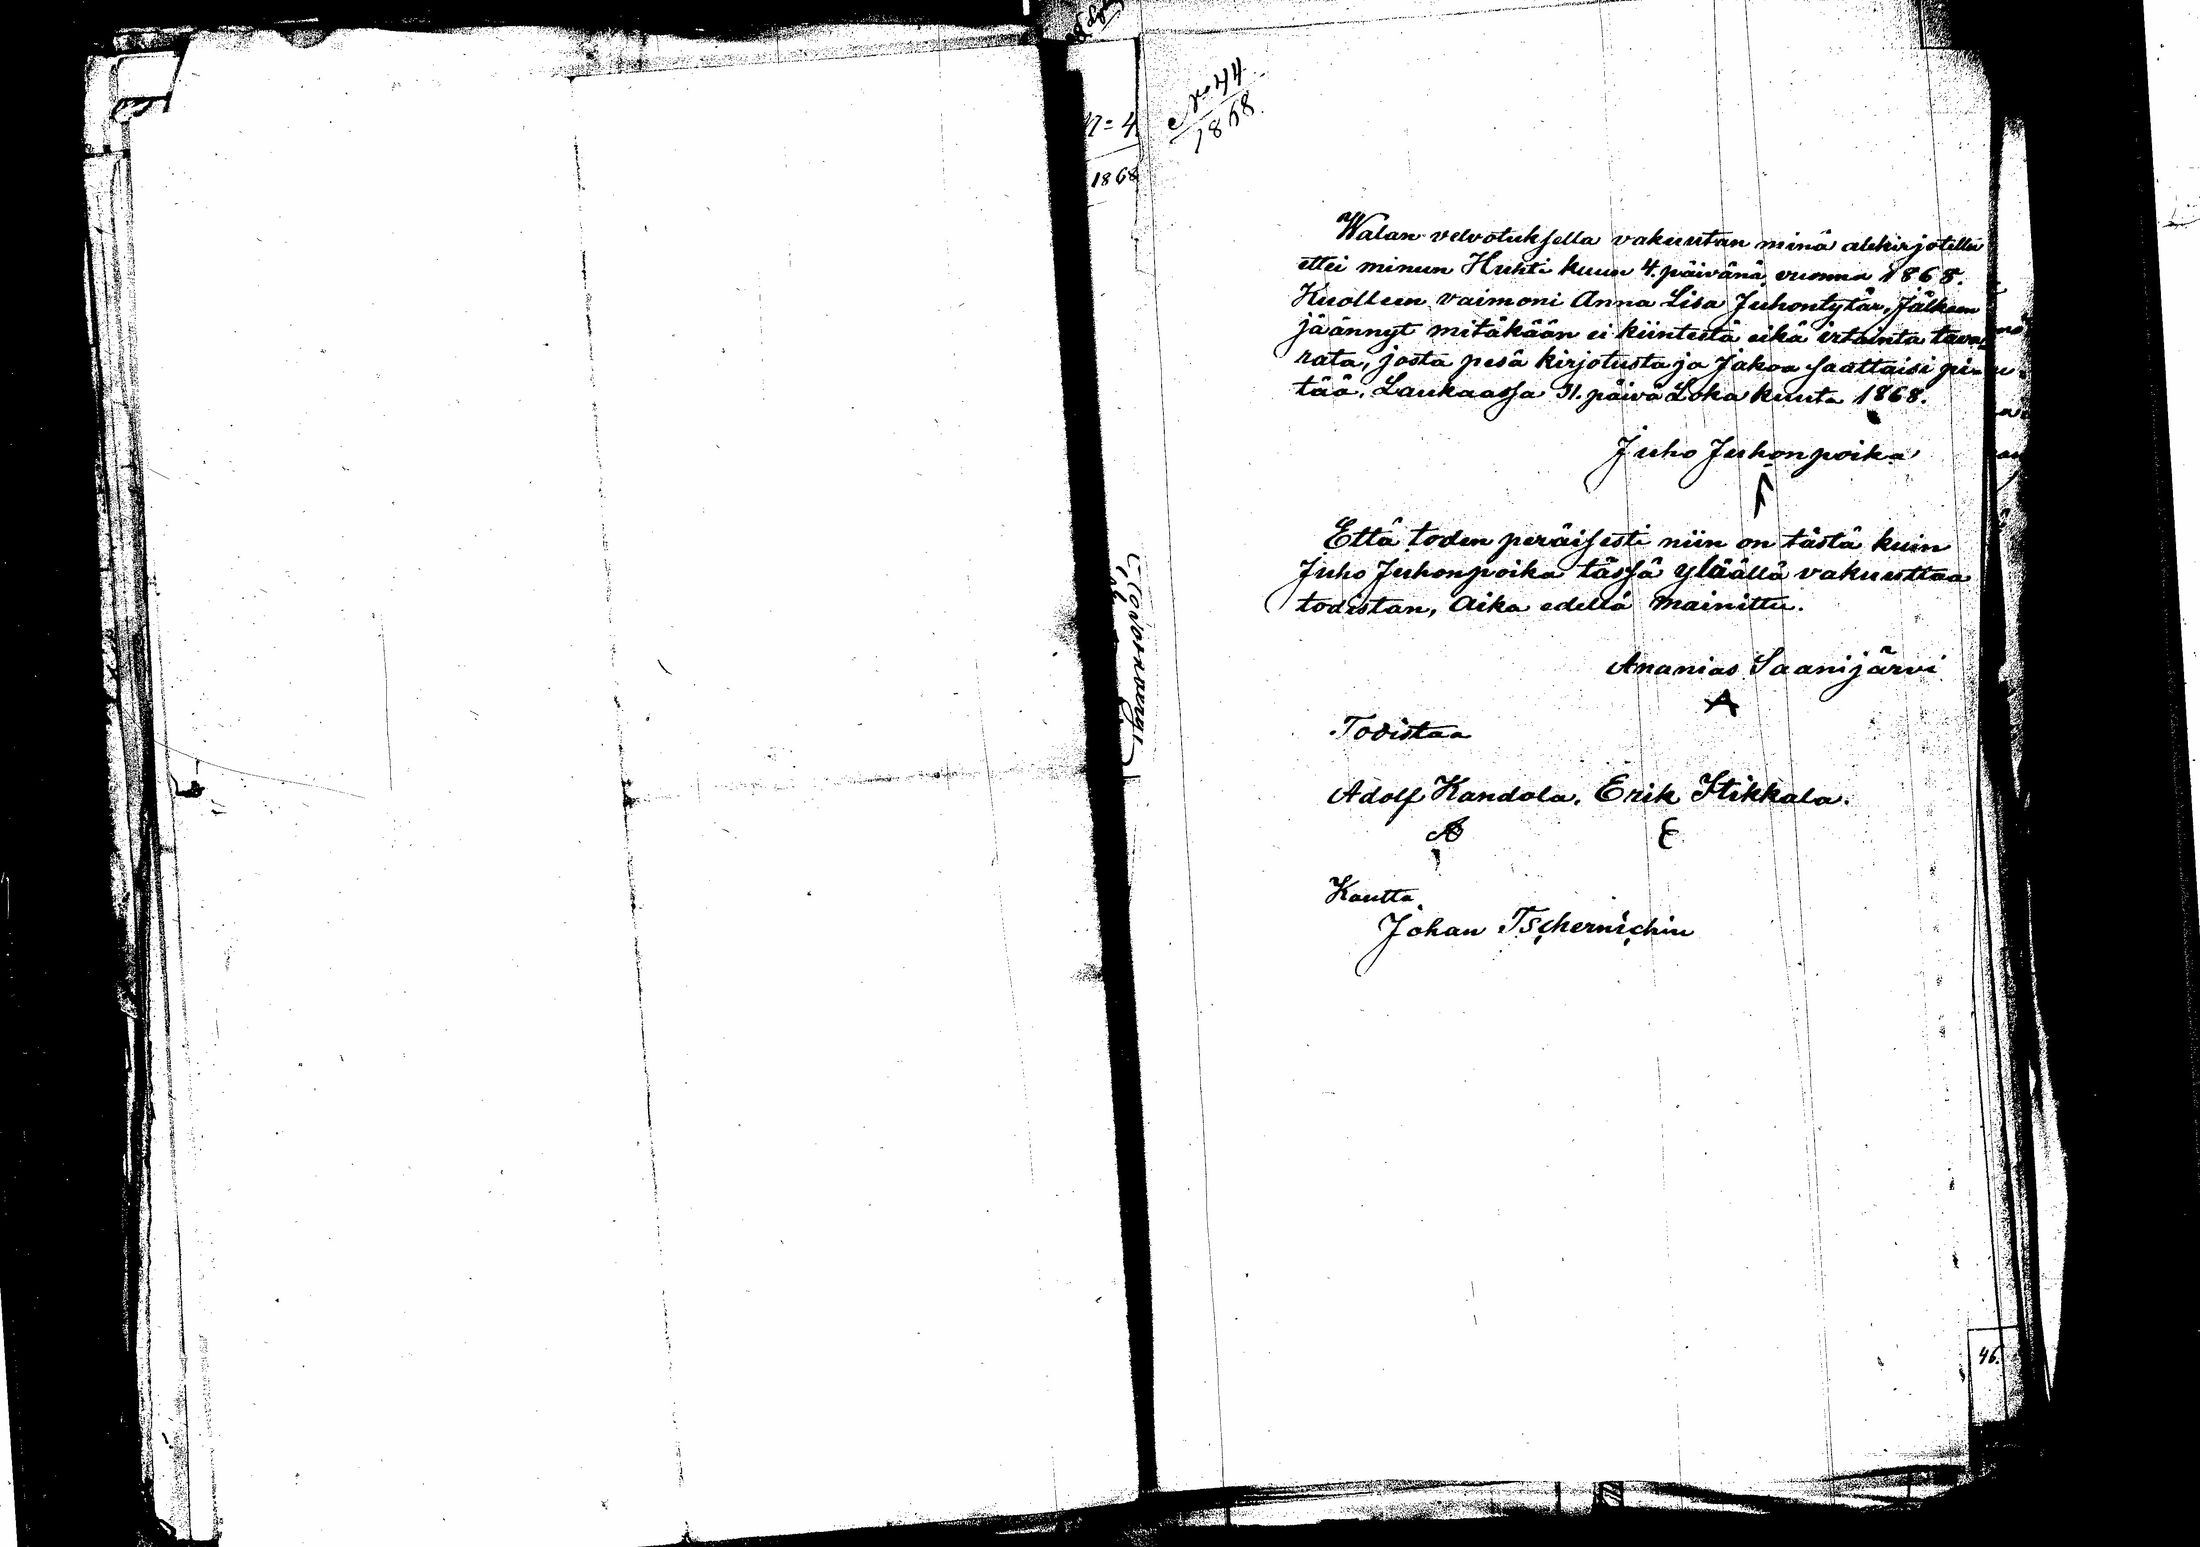 No 44
1868.
Walan velvotuksella vakuutan minä allekirjotettu
ettei minun Huhti kuun 4. päivänä vuonna 1868.
Kuolleen vaimoni Anna Lisa Juhontytär, Jälkeen
jäännyt mitäkään ei kiintestä eikä irtainta tava-
rata, josta pesä kirjotusta ja Jakoa saattaisi pi-
tää. Laukaassa 31. päivä Loka kuuta 1868.
Juho Juhonpoika
Että toden peräisesti niin on tästä kuin
Juho Juhonpoika tässä yläällä vakuuttaa
todistan, Aika edellä mainittu.
Ananias Saanijärvi
A
Todistaa
Adolf Kandola. Erik Itikkala.
A E
Kautta
Johan Tschernichin
1868
46.